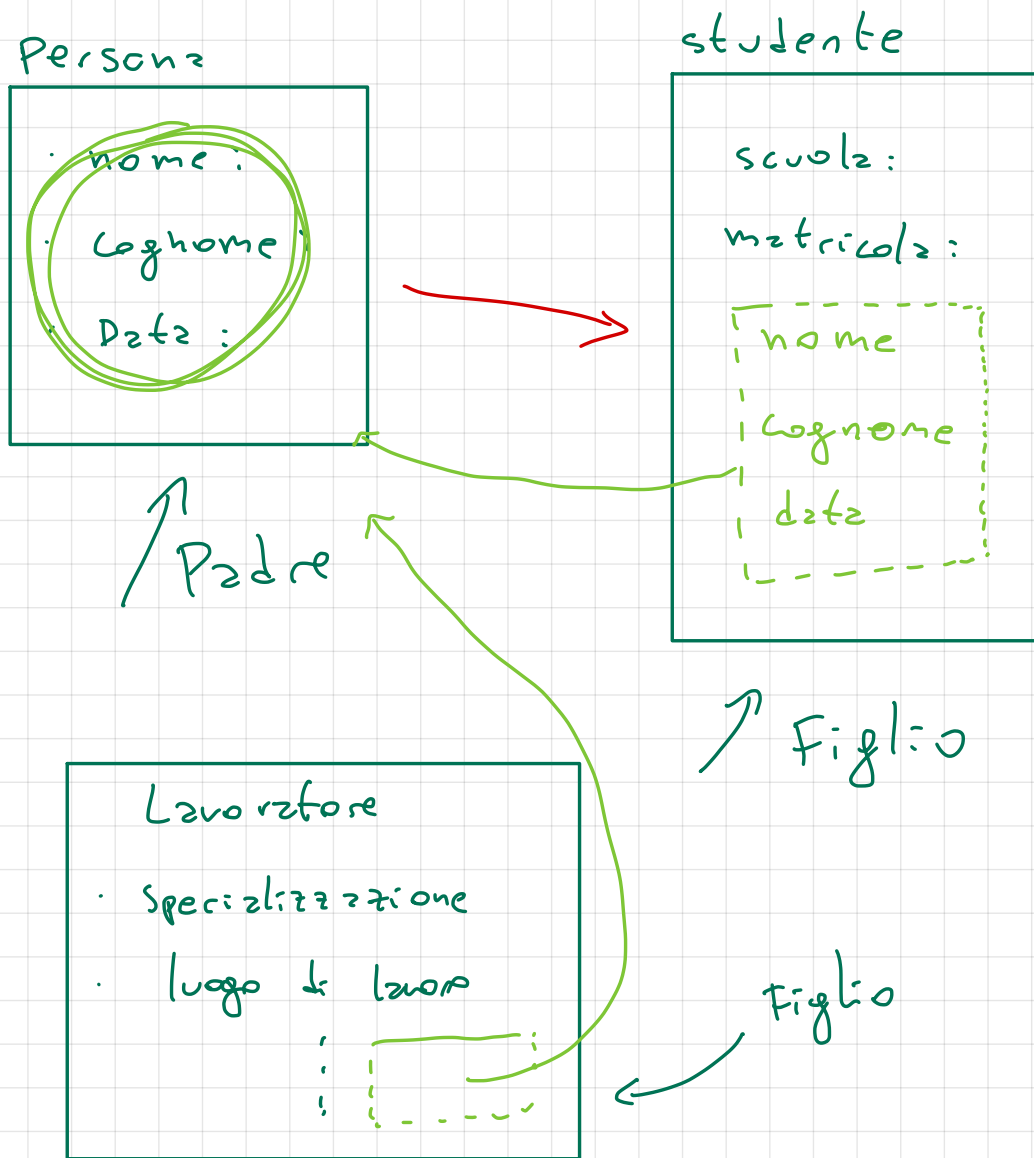 Persona
· nome :
· Cognome :
· Data :
Padre
studente
scuola :
matricola :
nome
cognome
data
Figlio
Lavoratore
· Specializzazione
· luogo di lavoro
Figlio